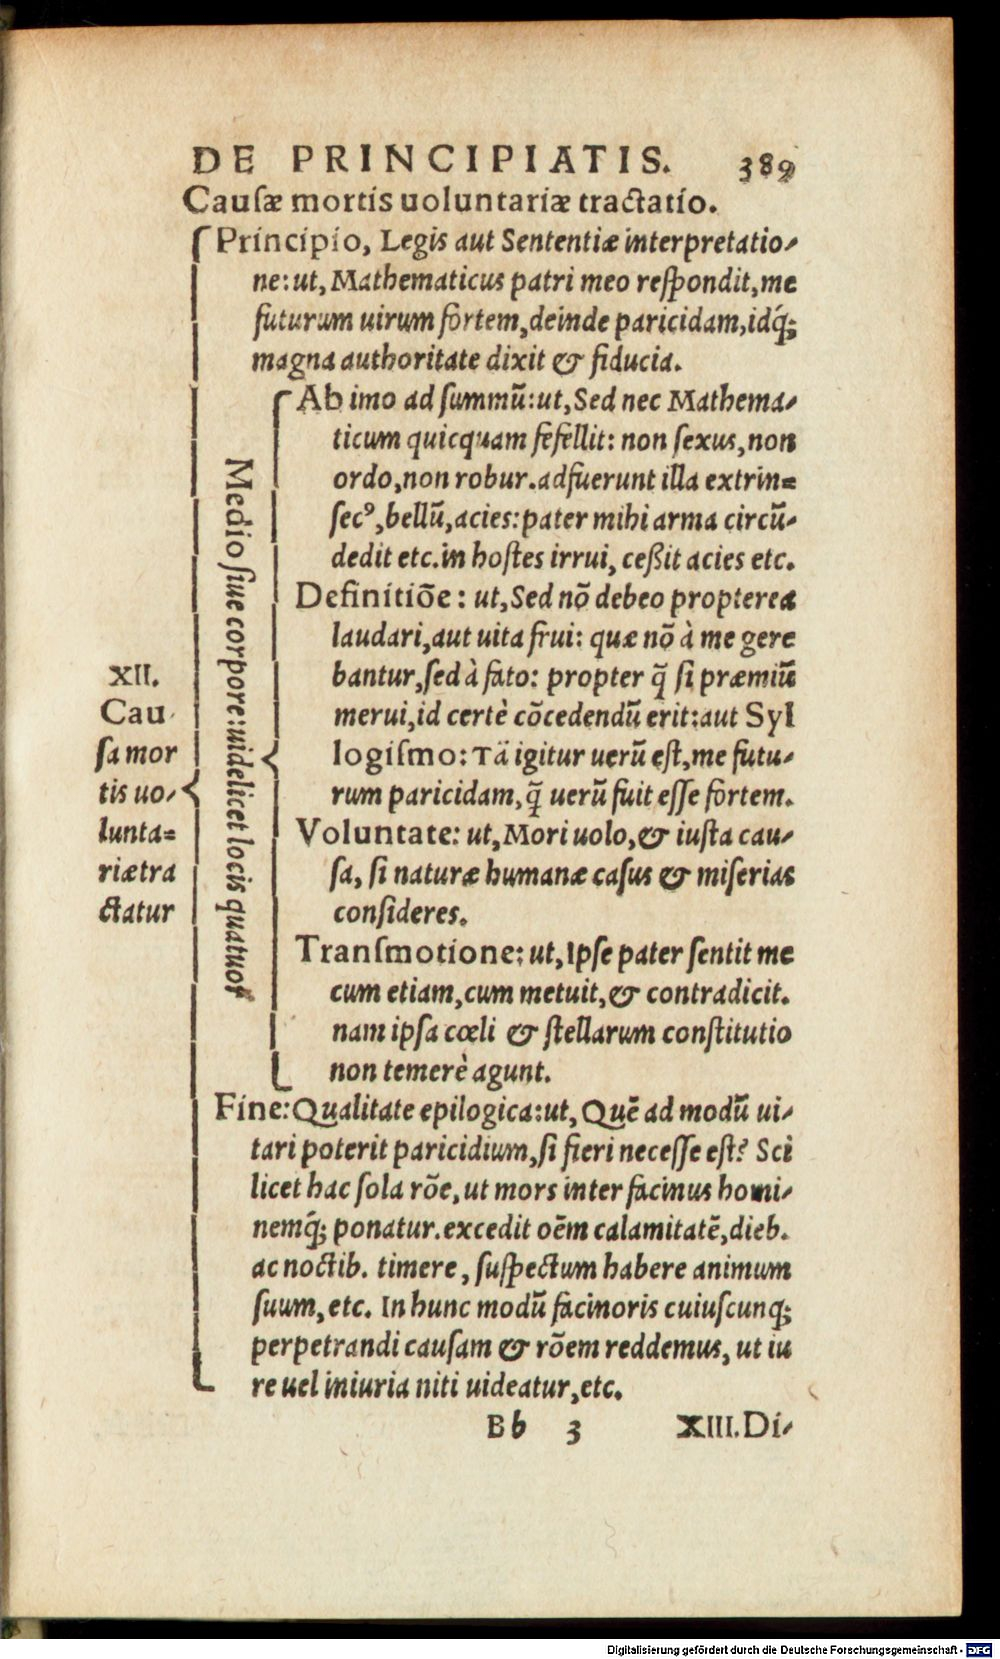 DE PRINCIPIATIS. 389
Cauſæ mortis uoluntariæ tractatio.
Principio, Legis aut Sententiæ interpretatio-
ne: ut, Mathematicus patri meo reſpondit, me
futurum uirum fortem, deinde paricidam, idq́;
magna authoritate dixit & fiducia.
Ab imo ad ſummũ: ut, Sed nec Mathema-
ticum quicquam fefellit: non ſexus, non
ordo, non robur. adfuerunt illa extrin=
ſecꝰ, bellũ, acies: pater mihi arma circũ-
dedit etc. in hoſtes irrui, ceßit acies etc.
Definitiõe: ut, Sed nõ debeo propterea
laudari, aut uita frui: quæ nõ à me gere
bantur, ſed à fato: propter q̃ ſi præmiũ
merui, id certè cõcedendũ erit: aut Syl
logiſmo: Tã igitur uerũ eſt, me futu-
rum paricidam, q̃ uerũ fuit eſſe fortem.
Voluntate: ut, Mori uolo, & iuſta cau-
ſa, ſi naturæ humanæ caſus & miſerias
conſideres.
Tranſmotione: ut, Ipſe pater ſentit me
cum etiam, cum metuit, & contradicit.
nam ipſa cœli & ſtellarum conſtitutio
non temerè agunt.
Medio ſiue corpore: uidelicet locis quatuor
XII.
Cau
ſa mor
tis uo-
lunta=
riæ tra
ctatur
Fine: Qualitate epilogica: ut, Quẽ ad modũ ui-
tari poterit paricidium, ſi fieri neceſſe eſt? Sci
licet hac ſola rõe, ut mors inter facinus homi-
nemq́; ponatur. excedit oẽm calamitatẽ, dieb.
ac noctib. timere, ſuſpectum habere animum
ſuum, etc. In hunc modũ facinoris cuiuſcunq;
perpetrandi cauſam & rõem reddemus, ut iu
re uel iniuria niti uideatur, etc.
Bb 3 XIII. Di-
Digitalisierung gefördert durch die Deutsche Forschungsgemeinschaft - DFG